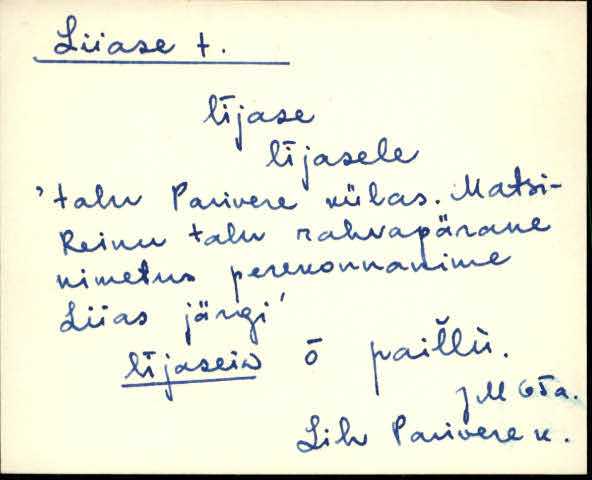 Liiase t.
lījase
lījasele
'talu Parivere külas. Matsi-
Reinu talu rahvapärane
nimetus perekonnanime
Liias järgi'
lījasein ō paiľľù.
Lih Parivere k.